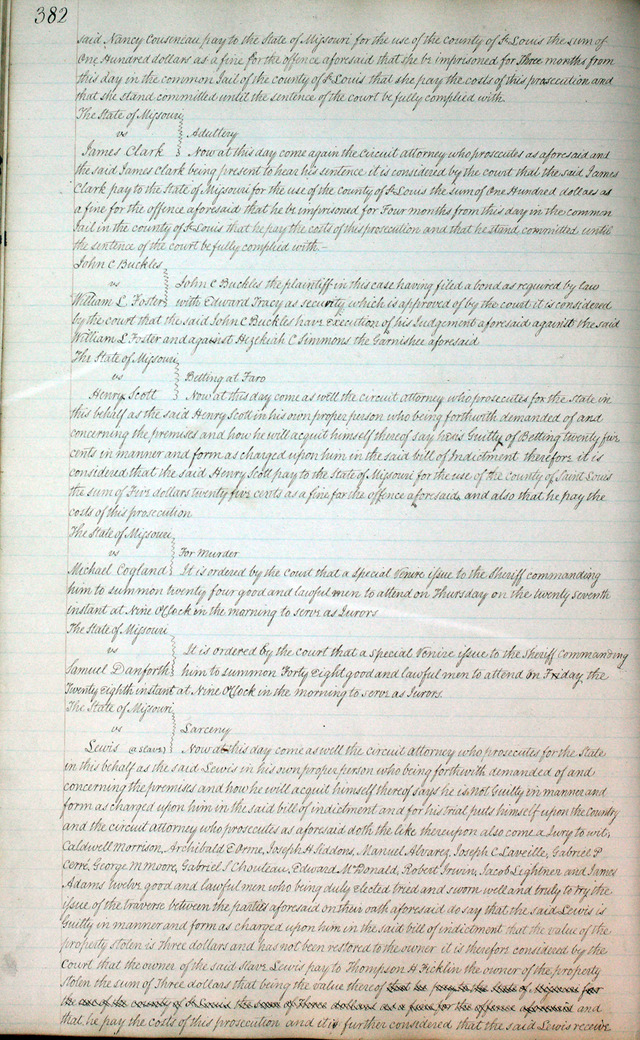 382
said Nancy Cousineau pay to the State of Missouri for the use of the county of St Louis the sum of
One Hundred dollars as a fine for the offence aforesaid that she be imprisoned for Three months from
this day in the common Jail of the county of St Louis that she pay the costs of this prosecution and
that she stand committed until the sentence of the court be fully complied with.
The State of Missouri
vs Adultery
James Clark Now at this day come again the circuit attorney who prosecutes as aforesaid and
the said James Clark being present to hear his sentence it is considered by the court that the said James
Clark pay to the State of Missouri for the use of the county of St Louis the sum of One Hundred dollars as
a fine for the offence aforesaid that he be imprisoned for Four months from this day in the common
Jail in the county of St Louis that he pay the costs of this prosecution and that he stand committed until
the sentence of the court be fully complied with –
John C Buckles
vs John C Buckles the plaintiff in this case having filed a bond as required by law
William L. Foster with Edward Tracy as security which is approved of by the court it is considered
by the court that the said John C Buckles have execution of his Judgement aforesaid against the said
William L Foster and against Hezekiah C Simmons the Garnishee aforesaid
The State of Missouri
vs Betting at Faro
Henry Scott Now at this day come as well the circuit attorney who prosecutes for the State in
this behalf as the said Henry Scott in his own proper person who being forthwith demanded of and
concerning the premises and how he will acquit himself thereof say he is Guilty of Betting twenty five
cents in manner and form as charged upon him in the said bill of Indictment therefore it is
considered that the said Henry Scott pay to the State of Missouri for the use of the County of Saint Louis
the sum of Five dollars twenty five cents as a fine for the offence aforesaid and also that he pay the
costs of this prosecution
The State of Missouri
vs For Murder
Michael Cogland It is ordered by the Court that a special Venire issue to the Sheriff commanding
him to summon twenty four good and lawful men to attend on Thursday on the twenty seventh
instant at Nine O'Clock in the morning to serve as Jurors
The State of Missouri
vs It is ordered by the court that a special Venire issue to the Sheriff commanding
Samuel Danforth him to summon Forty eight good and lawful men to attend on Friday the
Twenty eighth instant at Nine O'Clock in the morning to serve as Jurors.
The State of Missouri
vs Larceny
Lewis (a slave) Now at this day come as well the circuit attorney who prosecutes for the State
in this behalf as the said Lewis in his own proper person who being forthwith demanded of and
concerning the premises and how he will acquit himself thereof says he is Not Guilty in manner and
form as charged upon him in the said bill of indictment and for his trial puts himself upon the country
and the circuit attorney who prosecutes as aforesaid doth the like thereupon also come a Jury to wit,
Caldwell Morrison, Archibald E Orme, Joseph H Siddons, Manuel Alvarez, Joseph C Laveille, Gabriel P
Cerré, George M Moore, Gabriel S Chouteau, Edward McDonald, Robert Irwin, Jacob Lightner and James
Adams twelve good and lawful men who being duly elected tried and sworn well and truly to try the
issue of the traverse between the parties aforesaid on their oath aforesaid do say that the said Lewis is
Guilty in manner and form as charged upon him in the said bill of indictment that the value of the
property stolen is three dollars and has not been restored to the owner it is therefore considered by the
Court that the owner of the said slave Lewis pay to Thompson H Ficklin the owner of the property
stolen the sum of Three dollars that being the value thereof that he pay to the state of Missouri for
the use of the county of St Louis the sum of Three dollars as a fine for the offence aforesaid and
that he pay the costs of this prosecution and it is further considered that the said Lewis receive